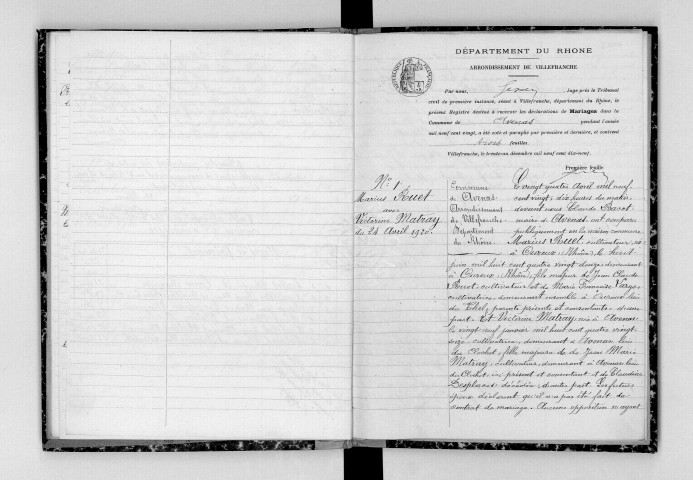 DÉPARTEMENT DU RHONE
ARRONDISSEMENT DE VILLEFRANCHE
Par nous, Juge près le Tribunal
civil de première instance, séant à Villefranche, département du Rhône, le
présent Registre destiné à recevoir les déclarations de Mariages dans la
Commune de Avenas pendant l'année
mil neuf cent vingt, a été coté et paraphé par première et dernière, et contient
trois feuilles.
Villefranche, le trente-un décembre mil neuf cent dix-neuf.
Première feuille
N° 1
Marius Ruet
avec
Victorine Matray
du 24 Avril 1920.
Commune
d'Avenas
Arrondissement
de Villefranche
Département
du Rhône.
Le vingt quatre Avril mil neuf
cent vingt, dix heures du matin,
devant nous Claude
maire d'Avenas ont comparu
publiquement en la maison commune
Marius Ruet, cultivateur, né
à (Rhône), le huit
juin mil huit cent quatre vingt douze demeurant
à (Rhône), fils majeur de Jean Claude
Ruet, cultivateur et de Marie Françoise
cultivatrice, demeurant ensemble à lieu
du parents présents et consentants d'une
part. Et Victorine Matray, née à Avenas
le vingt neuf janvier mil huit cent quatre vingt
seize, cultivatrice, demeurant à Avenas lieu
du Clochet, fille majeure de Jean Marie
Matray, cultivateur, demeurant à Avenas lieu
du Clochet, ici présent et consentant et de Claudine
Desplaces décédée, d'autre part. Les futurs
époux déclarent qu'il n'a pas été fait de
contrat de mariage. Aucune opposition n'ayant